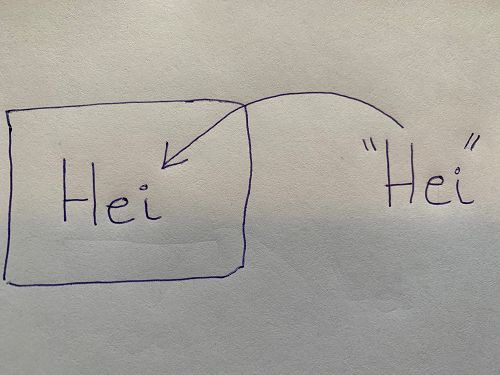 Hei
"Hei"